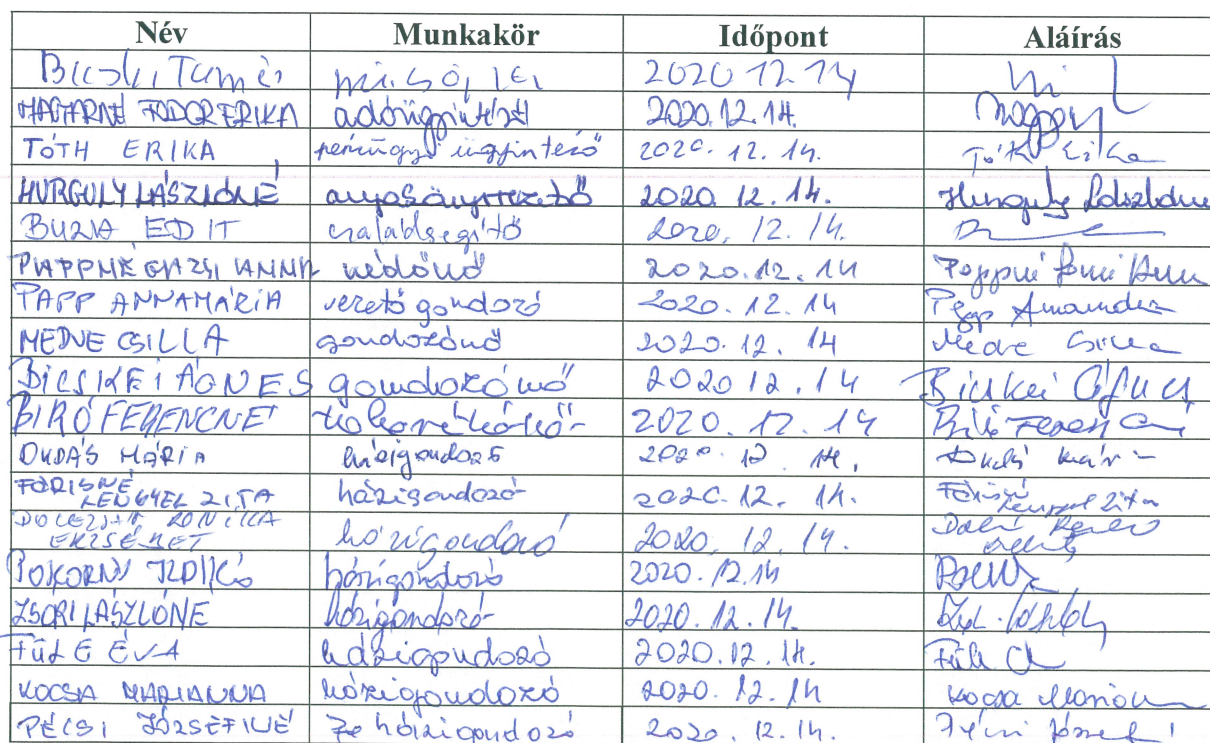 Név Munkakör Időpont Aláírás
Tamás 2020 12.14
MAGYARNÉ FODOR ERIKA adóügyintéző 2020.12.14.
TÓTH ERIKA pénzügyi ügyintéző 2020. 12. 14. Tóth Erika
HURGULY LÁSZLÓNÉ 2020. 12. 14. Hurguly Lászlóné
BUZIA EDIT családsegítő 2020. 12. 14.
PAPPNÉ GAZSI ANNA védőnő 2020.12.14 Pappné
PAPP ANNAMÁRIA vezető gondozó 2020. 12. 14 Papp Annamária
MEDVE CSILLA gondozónő 2020. 12. 14 Medve Csilla
BICSKEI ÁGNES gondozónő 2020 12. 14 Bicskei Ágnes
BIRÓ FERENCNÉ 2020. 12. 14 Biró Ferencné
DUDÁS MÁRIA házigondozó 2020. 12. 14. Dudás Mária
FÓRISNÉ
LENGYEL ZITA házigondozó 2020. 12. 14. Fórisné
Lengyel Zita
ERZSÉBET házigondozó 2020. 12. 14.
POKORNY ILDIKÓ házigondozó 2020. 12.14
ZSORI LÁSZLÓNÉ házigondozó 2020. 12. 14.
FÜLE ÉVA házigondozó 2020. 12. 14. Füle
KOCSA MARIANNA házigondozó 2020. 12. 14 Kocsa Mariann
PÉCSI JÓZSEFNÉ házigondozó 2020. 12. 14.